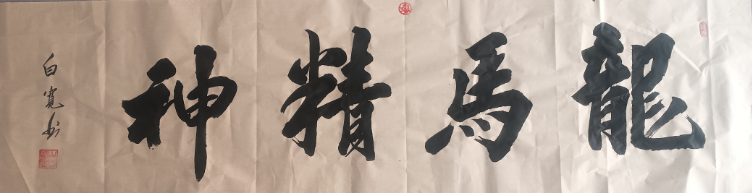 龍馬精神
白寬书